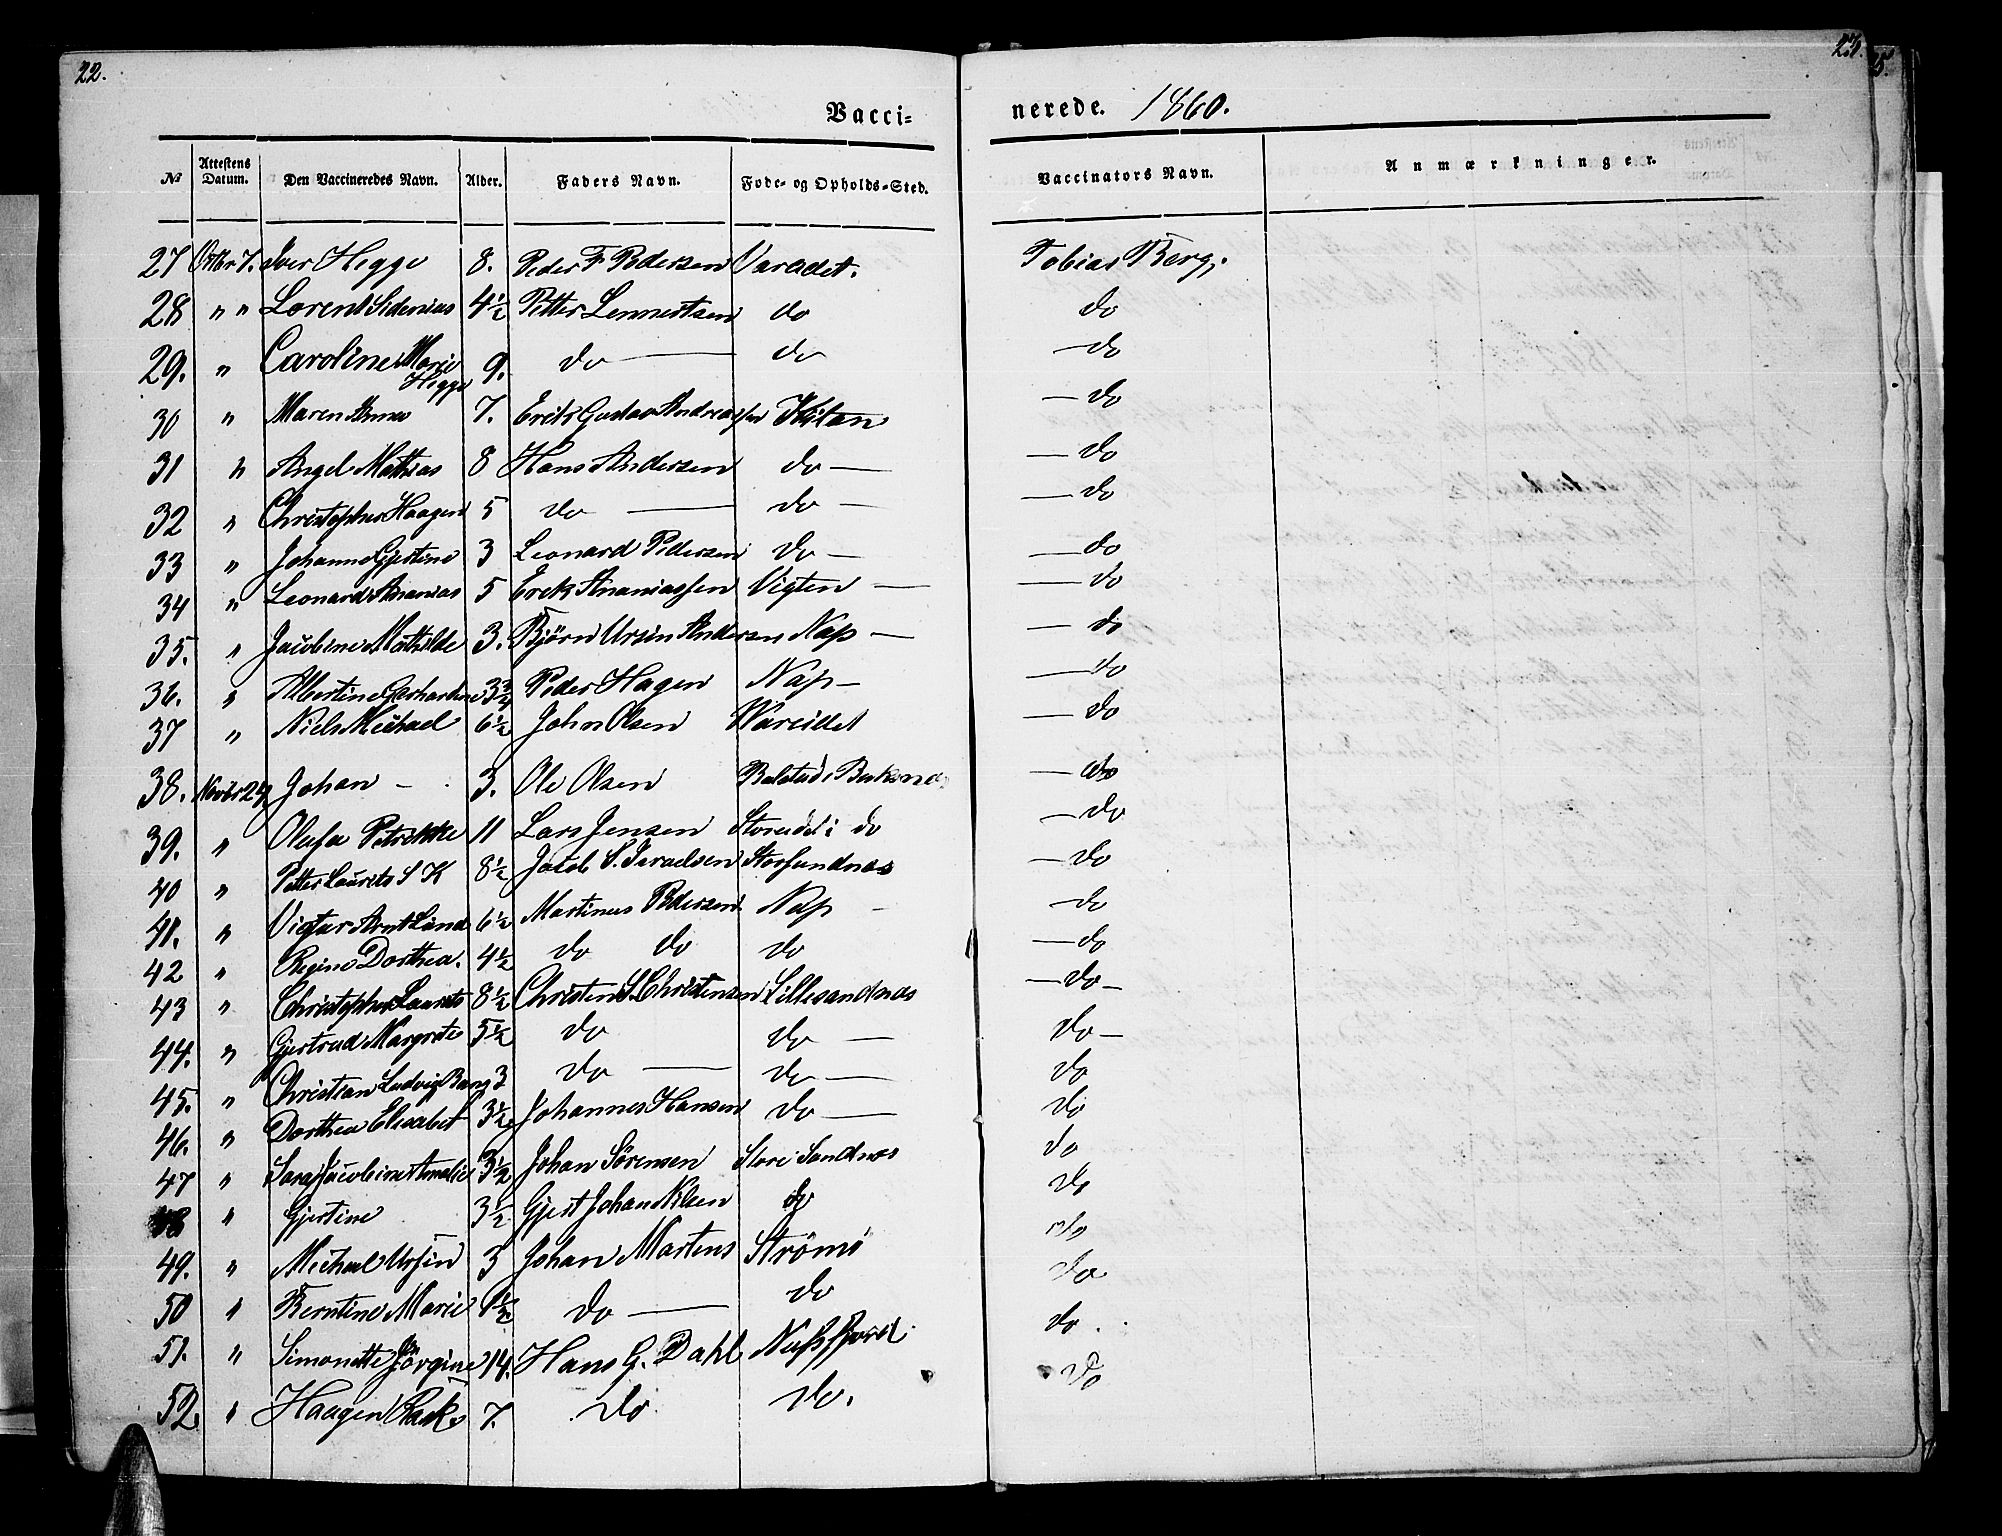 22.
23.
5.
Vacci-
nerede. 1860.
No Attestens Datum. Den Vaccineredes Navn. Alder. Faders Navn. Føde- og Opholds-Sted. Vaccinators Navn. Anmærkninger.
27 Octbr 7. Iver Hegge 8. Peder F Pedersen Varadet. Tobias Berg.
28 " " Lorent Sidenius 4½ Petter Lennertsen do do
29. " Caroline Marie Hegge 9. do — do — do
30 " Maren Anna 7. Erik Gustav Andreassen Kilan — do
31 " Angel Mathias 8 Hans Andersen do — — do
32 " Christopher Haagen 5 do — do — — do
33 " Johanna Gjertine 3 Leonard Pedersen do — — do
34 " Leonard Ananias 5 Erek Ananiassen Vigten — — do
35. " Jacobine Mathilde 3. Bjørn Ursin Andersen Nap — — do
36. " Albertine Gerhardine 3¾ Peder Hagen Nap — — do
37 " Niels Michael 6½ John Olsen Wareidet — do
38. Novbr 24 Johan — 3. Ole Olsen Balstad i Buksnes — do
39. " Olufa Petrikke 11 Lars Jensen Storeidet i do — do
40 " Petter Laurits S K 8½ Jacob S. Israelsen Storsundnes — do
41. " Vigtar Arnt Lund 6½ Martinus Pedersen Nap — do
42 " Regine Dorthea. 4½ do do do — do
43 " Christopher Laurits 8½ Christen S. Christensen Lillesandnes — do —
44. " Gjertrud Margrete 5½ do do — do —
45. " Christian Ludvig Bang 3 do — do — do
46. " Dorthea Elisabet 3½ Johannes Hansen do — do
47 " Sara Jacobine Amalie 3½ Johan Sørensen Store Sandnes do
48 " Gjertine 3½ Gjert Johan Nilsen do do
49. " Michael Ursin 3 Johan Martens Strømø do
50 " Berntine Marie 1½ do — do do
51. " Simonette Jörgine 14. Hans G. Dahl Nusfjord do
52. " Haagen Rask 7. do do. do